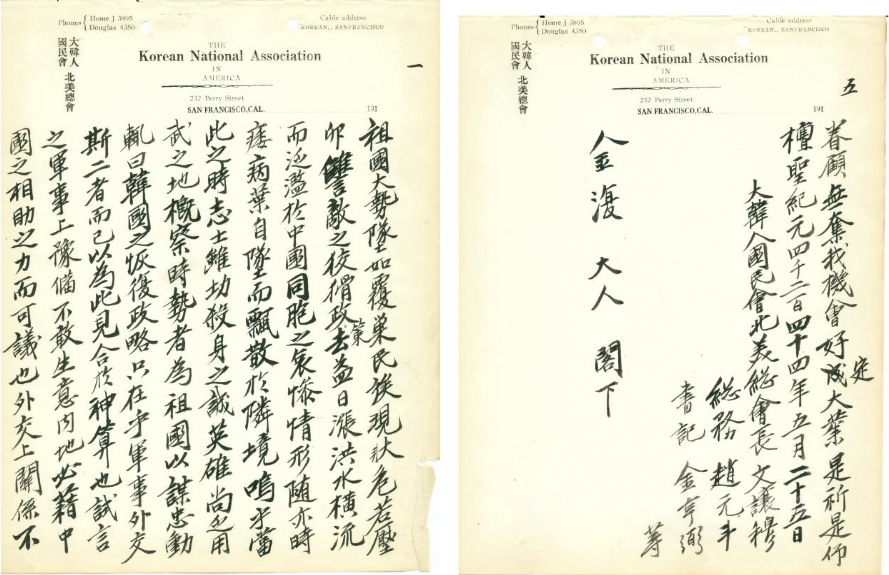 Phones { Home J 3895
Douglas 4350
Cable address
KOREAN,, SANFRANCISCO
THE
Korean National Association
IN
AMERICA
232 Perry Street
SAN FRANCISCO,CAL. 191
大韓人 北美總會
國民會
一
祖國大勢墜如覆巢民族現狀危若壓
卵讐敵之狡猾政策去益日漲洪水橫流
而泛濫於中國同胞之哀慘情形随亦時
痿病葉自墜而飄散於隣境嗚乎當
此之時志士雖劫殺身之誠英雄尚乏用
武之地概察時勢者為祖國以謀忠動
輒曰韓國之恢復政略只在乎軍事外交
斯二者而已以為此見合於神算也試言
之軍事上豫備不敢生意內地必籍中
國之相助之力而可議也外交上關係不
Phones { Home J 3895
Douglas 4350
Cable address
KOREAN,, SANFRANCISCO
THE
Korean National Association
IN
AMERICA
232 Perry Street
SAN FRANCISCO,CAL. 191
大韓人 北美總會
國民會
五
眷顧無棄我機會好成定大業是祈是仰
檀聖紀元四千二百四十四年五月二十五日
大韓人國民會北美総會長 文讓穆
総務 趙元斗
書記 金亨弼
等
金復大人閣下